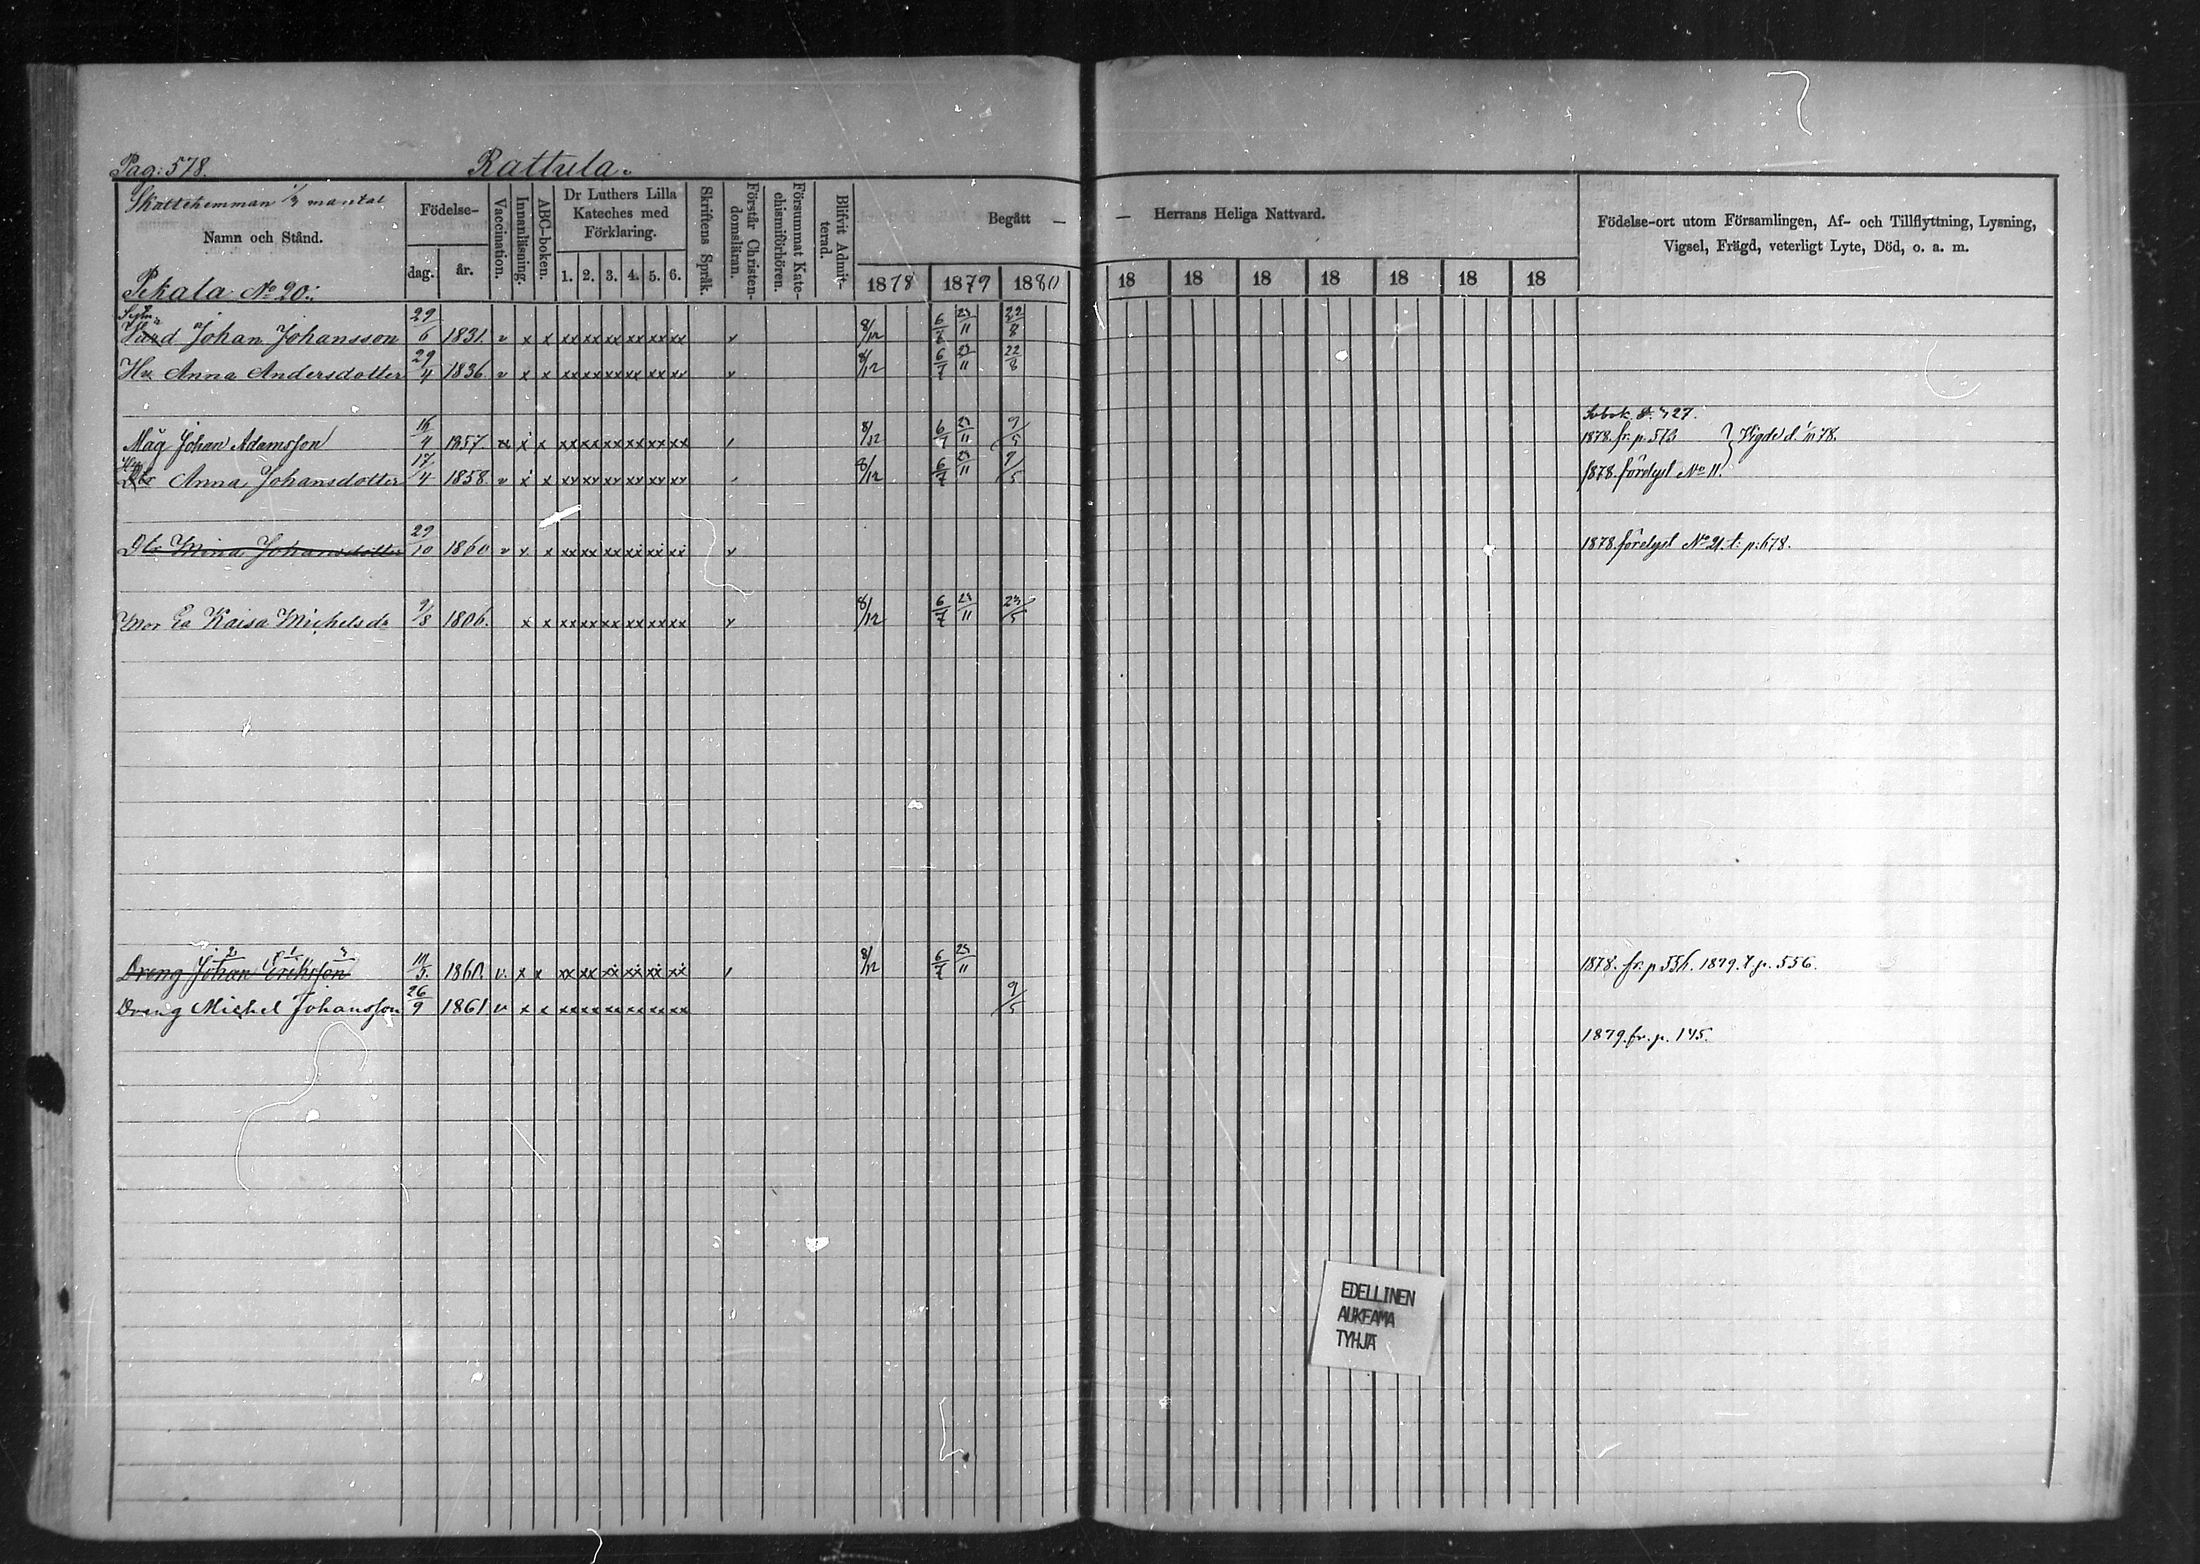 Pag: 578. Rattula.
Skattehemman 1/3 mantal
Namn och Stånd.
Födelse-
dag. år.
Vaccination.
Innanläsning.
ABC-boken.
Dr Luthers Lilla
Kateches med
Förklaring.
1. 2. 3. 4. 5. 6.
Skriftens Språk.
Förstår Christen-
domsläran.
Försummat Kate-
chismiförhören.
Blifvit Admit-
terad.
Begått —
1878 1879 1880
— Herrans Heliga Nattvard.
18 18 18 18 18 18 18
Födelse-ort utom Församlingen, Af- och Tillflyttning, Lysning,
Vigsel, Frägd, veterligt Lyte, Död, o. a. m.
Pekala No 20.
Johan Johansson 29/6 1831. v x x xx xx xx xx xx xx v 8/12 6/7 23/11 22/8
Hu Anna Andersdotter 29/4 1836. v x x xx xx xx xx xx xx v 8/12 6/7 23/11 22/8
Måg Johan Adamsson 16/4 1857. x x xx xx xx xx xx xx 8/12 6/7 23/11 9/5 1878. fr. p. 573 Vigde d. 1/11 78.
Anna Johansdotter 17/4 1858. v x x xx xx xx xx xx xx 8/12 6/7 23/11 9/5 1878. förelyst No 11.
Dtr Mina Johansdotter 29/10 1860 v x x xx xx xx xx xx xx v 1878. förelyst No 21. t. p. 678.
Mor Ea Kaisa Michelsdr 9/8 1806. x x xx xx xx xx xx xx v 8/12 6/7 23/11 23/5
2 1 3
Dreng Johan Eriksson 1860. v. x x xx xx xx xx xx xx 8/12 6/7 23/11 1878. fr. p. 1879. t. p. 556.
Dreng Michel Johansson 26/9 1861 v x x xx xx xx xx xx xx 9/5
1879. fr. p. 145.
EDELLINEN
AUKEAMA
TYHJÄ